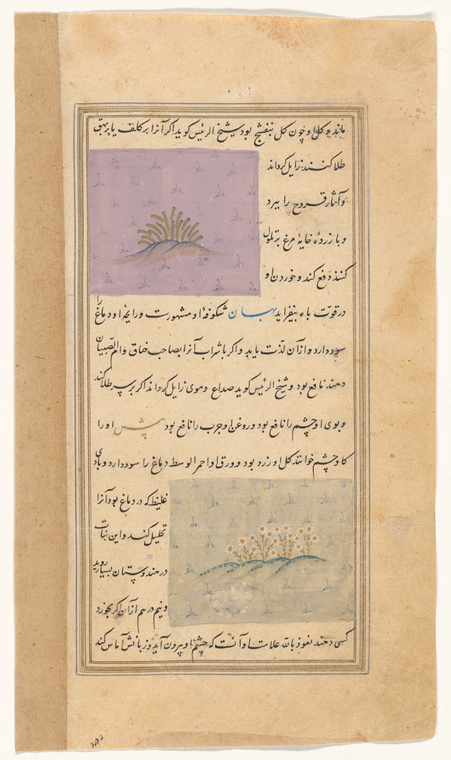 ماند و گل او چون گل بنفشج بود شیخ الرئیس گوید اگر آنرا بر کلف یا بر بهق
طلا کنند زایل گرداند
و آثار قروح را ببرد
و با زرده خایهٔ مرغ بر
کنند دفع کند و خوردن او
در قوت باه بیفزاید شکوفهٔ او مشهورست و رایحهٔ او دماغ را
سود دارد و از آن لذت یابد و اگر با شراب آنرا بصاحب خناق و ام الصبیان
دهند نافع بود و شیخ الرئیس گوید صداع و موی زایل گرداند اگر بر سر طلا کنند
و بوی او چشم را نافع بود و روغن او جرب را نافع بود او را
کاو چشم خوانند گل او زرد بود و ورق او احمر الوسط دماغ را سود دارد و بادی
غلیظ که در دماغ بود آنرا
تحلیل کند و این نبات
در هندوستان بسیار روید
و نیم درم از آن گر بخورد
کسی دهند نعوذ بالله علامت او آنست که چشم او بیرون آید و زبانش آماس کند